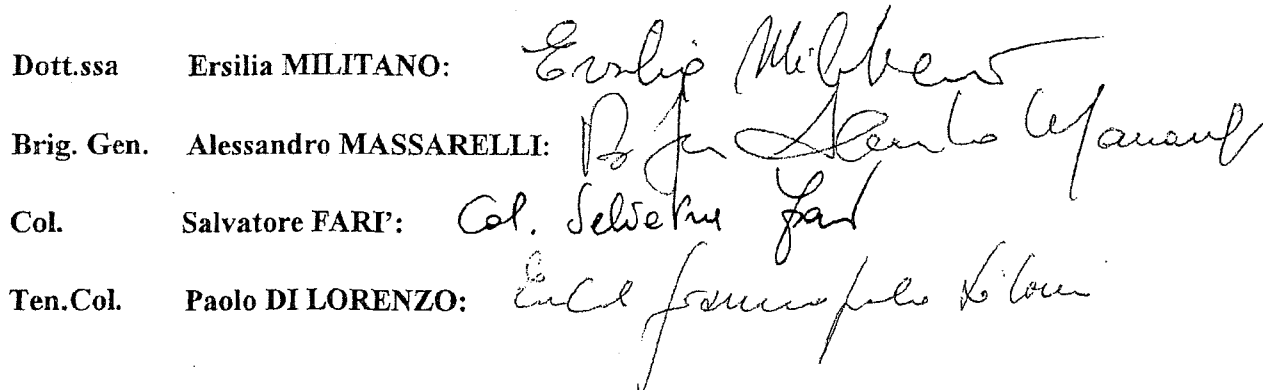 Dott.ssa Ersilia MILITANO: Ersilia Militano
Brig. Gen. Alessandro MASSARELLI: B. Gen Alessandro
Col. Salvatore FARI': Col. Salvatore Farì
Ten.Col. Paolo DI LORENZO: